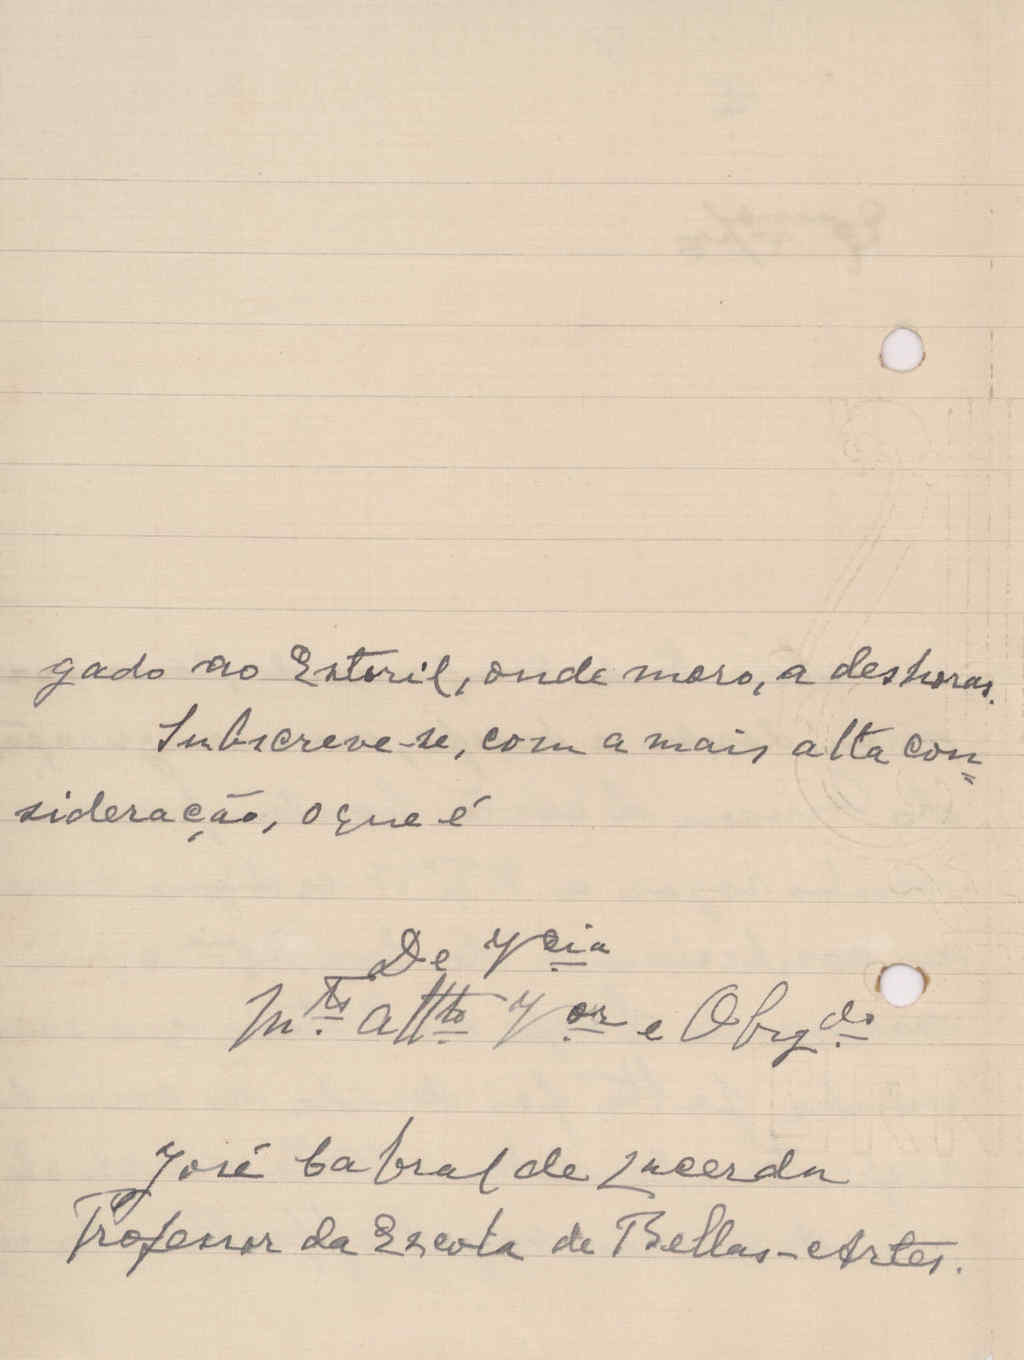 gado ao Estoril, onde moro, a deshoras.
Subscreve-se, com a mais alta con=
sideração, o que é
De Vcia
Mto. attto Vor e Obrgdo
José Cabral de Lacerda
Professor da Escola de Bellas-Artes.